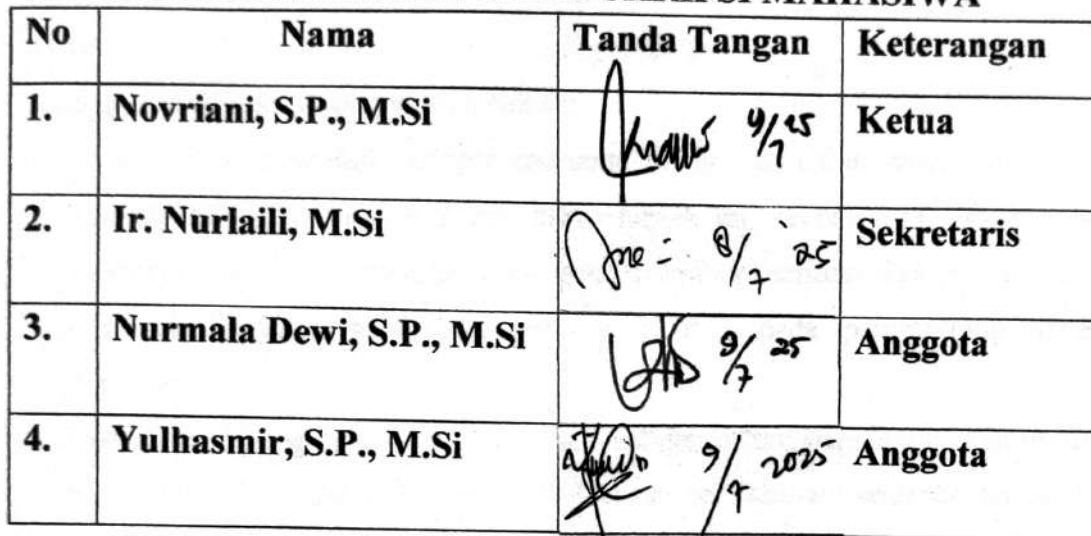 MAHASISWA
No Nama Tanda Tangan Keterangan
1. Novriani, S.P., M.Si 9/7 25 Ketua
2. Ir. Nurlaili, M.Si 8/7 25 Sekretaris
3. Nurmala Dewi, S.P., M.Si 9/7 25 Anggota
4. Yulhasmir, S.P., M.Si 9/7 2025 Anggota